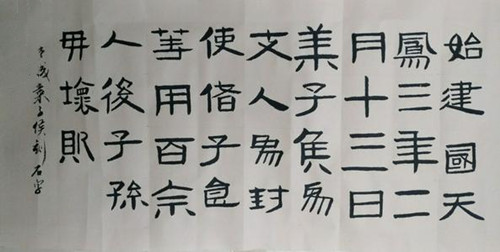 始建國天
鳳三年二
月十三日
萊子矦為
支人為封
使偖子食
等用百余
人後子孫
毋壞敗
戌萊子侯刻石